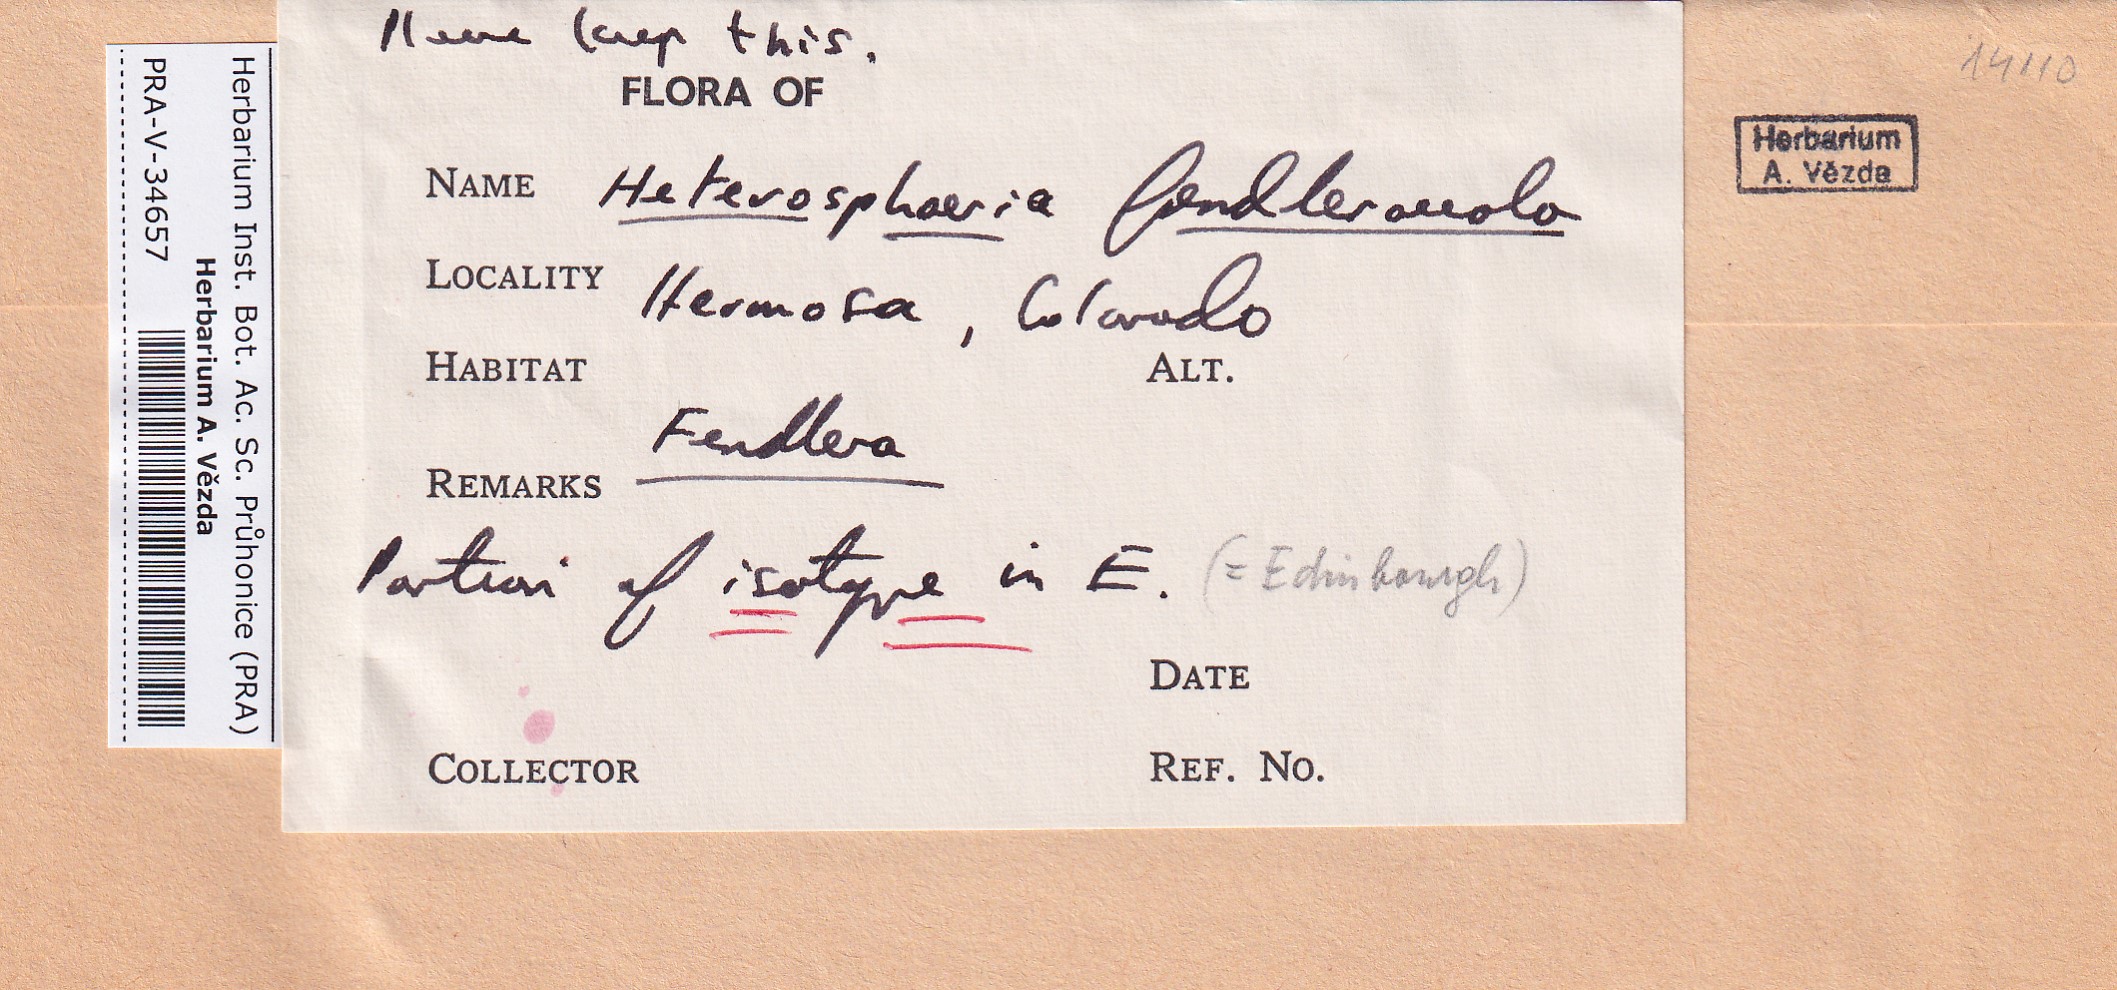 Please keep this.
FLORA OF
NAME Heterosphaeria fendleraecola
LOCALITY Hermosa, Colorado
HABITAT ALT.
Fendlera
REMARKS
Portion of isotype in E. (= Edinbourgh)
DATE
COLLECTOR REF. NO.
14110
Herbarium
A. Vězda
Herbarium Inst. Bot. Ac. Sc. Průhonice (PRA)
Herbarium A. Vězda
PRA-V-34657